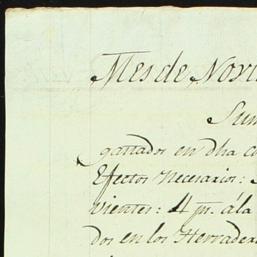 Mes de Novi
Sum
gastados en dha co
Efectos Necesarios:
vientes: 4 pr. ala
dos en los Herrader